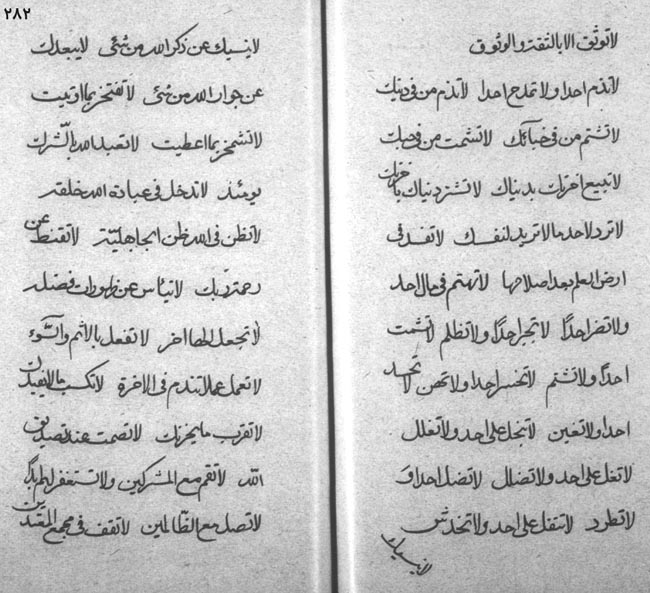 ٢٨٢
لا توثق الا بالثقة و الوثوق
لا تذم احدا ولا تمدح احدا لا تذم من فی دینك
لا تشتم من فی خبائك لا تشمت من فی
لا تبیع اخرتك بدنیاك لا تشتر دنیاك باخرتك
لا ترد لاحد ما لا ترید لنفسك لا تفسد فی
ارض العلم بعد اصلاحها لا تهتم فی مال احد
ولا تضر احدًا لا تجبر احدًا ولا تظلم لا تشمت
احدًا ولا تشتم لا تخسر احدا ولا تهن لا تحسد
احدا ولا تعین لا تبخل علی احد ولا تعلل
لا تغل علی احد ولا تضلل لا تضل احدا و
لا تطرد لا تثقل علی احد ولا تخدش
لا ینسیك
لا ینسیك عن ذكر الله من شئی لا یبعدك
عن جوار الله من شئی لا تفتخر بما اوتیت
لا تشمخر بما اعطیت لا تعبد الله بالشرك
یومئذ لا تدخل فی عبادة الله خلقه
لا تظن فی الله ظن الجاهلیة لا تقنط عن
رحمة ربك لا تیئاس عن فضله
لا تجعل الها اخر لا تفعل بالاثم والسّوء
لا تعمل عملا تندم فی الاخرة لا تكسب ما لا یفیدك
لا تقرب ما یحزنك لا تصمت عند تصدیق
الله لا تقم مع المشركین ولا تستغفر لهم
لا تصل مع الظالمین لا تقف فی مجمع المفسدین